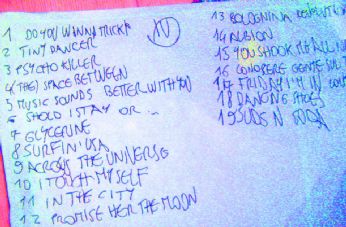 1 DO YOU WANNA TRICKY
2 TINY DANCER
3 PSYCHO KILLER
4 (THE) SPACE BETWEEN
5 MUSIC SOUNDS BETTER WITH YOU
6 SHOLD I STAY OR ...
7 GLYCERINE
8 SURFIN' USA
9 ACROSS THE UNIVERSE
10 I TOUCH MYSELF
11 IN THE CITY
12 PROMISE HER THE MOON
13 BOLOGNINA
14 ALBION
15 YOU SHOOK ME ALL
16 CONOSCERE GENTE SUL
17 FRIDAY I'M IN LOVE
18 DANCING SHOES
19 SUDS N SODA